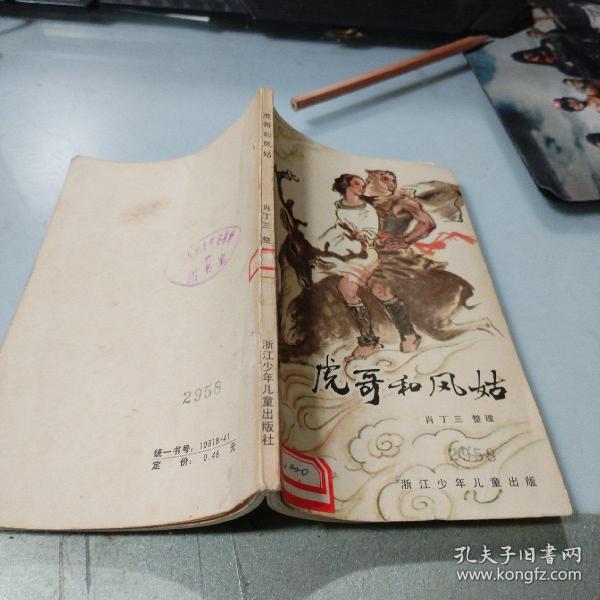 虎哥和凤姑
肖丁三 整理
2958
浙江少年儿童出版
虎哥和凤姑
肖丁三 整
浙江少年儿童出版社
图书室
2958
统一书号：10318·41
定 价：0.48 元
孔夫子旧书网
www.kongfz.com